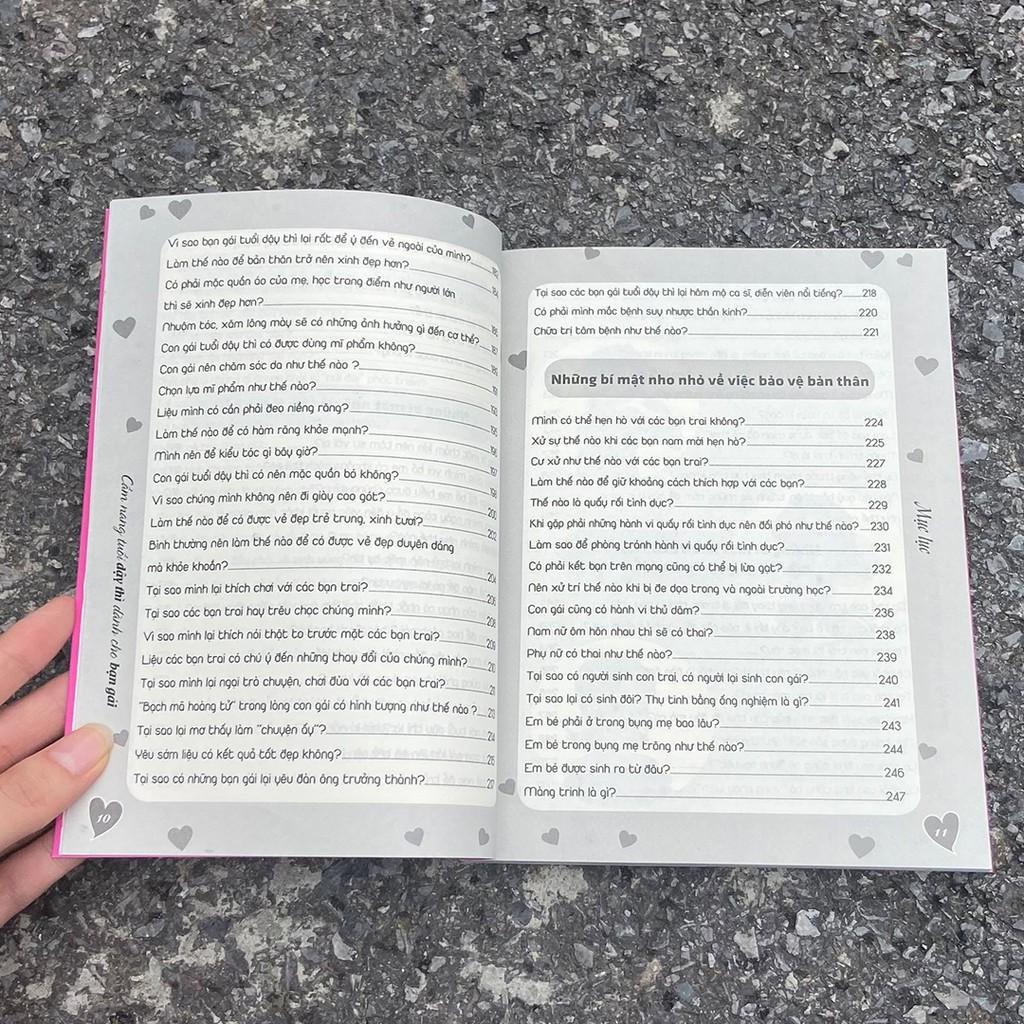 Vì sao bạn gái tuổi dậy thì lại rất để ý đến vẻ ngoài của mình? 182
Làm thế nào để bản thân trở nên xinh đẹp hơn? 184
Có phải mặc quần áo của mẹ, học trang điểm như người lớn
thì sẽ xinh đẹp hơn? 186
Nhuộm tóc, xăm lông mày sẽ có những ảnh hưởng gì đến cơ thể? 187
Con gái tuổi dậy thì có được dùng mĩ phẩm không? 189
Con gái nên chăm sóc da như thế nào ? 191
Chọn lựa mĩ phẩm như thế nào? 193
Liệu mình có cần phải đeo niềng răng? 195
Làm thế nào để có hàm răng khỏe mạnh? 196
Mình nên để kiểu tóc gì bây giờ? 197
Con gái tuổi dậy thì có nên mặc quần bó không? 198
Vì sao chúng mình không nên đi giày cao gót? 200
Làm thế nào để có được vẻ đẹp trẻ trung, xinh tươi? 202
Bình thường nên làm thế nào để có được vẻ đẹp duyên dáng
mà khỏe khoắn? 204
Tại sao mình lại thích chơi với các bạn trai? 206
Tại sao các bạn trai hay trêu chọc chúng mình? 208
Vì sao mình lại thích nói thật to trước mặt các bạn trai? 209
Liệu các bạn trai có chú ý đến những thay đổi của chúng mình? 210
Tại sao mình lại ngại trò chuyện, chơi đùa với các bạn trai? 211
"Bạch mã hoàng tử" trong lòng con gái có hình tượng như thế nào ? 213
Tại sao lại mơ thấy làm "chuyện ấy"? 214
Yêu sớm liệu có kết quả tốt đẹp không? 215
Tại sao có những bạn gái lại yêu đàn ông trưởng thành? 217
Cẩm nang tuổi dậy thì dành cho bạn gái
10
Tại sao các bạn gái tuổi dậy thì lại hâm mộ ca sĩ, diễn viên nổi tiếng? 218
Có phải mình mắc bệnh suy nhược thần kinh? 220
Chữa trị tâm bệnh như thế nào? 221
Những bí mật nho nhỏ về việc bảo vệ bản thân
Mình có thể hẹn hò với các bạn trai không? 224
Xử sự thế nào khi các bạn nam mời hẹn hò? 225
Cư xử như thế nào với các bạn trai? 227
Làm thế nào để giữ khoảng cách thích hợp với các bạn? 228
Thế nào là quấy rối tình dục? 229
Khi gặp phải những hành vi quấy rối tình dục nên đối phó như thế nào? 230
Làm sao để phòng tránh hành vi quấy rối tình dục? 231
Có phải kết bạn trên mạng cũng có thể bị lừa gạt? 232
Nên xử trí thế nào khi bị đe dọa trong và ngoài trường học? 234
Con gái cũng có hành vi thủ dâm? 236
Nam nữ ôm hôn nhau thì sẽ có thai? 238
Phụ nữ có thai như thế nào? 239
Tại sao có người sinh con trai, có người lại sinh con gái? 240
Tại sao lại có sinh đôi? Thụ tinh bằng ống nghiệm là gì? 241
Em bé phải ở trong bụng mẹ bao lâu? 243
Em bé trong bụng mẹ trông như thế nào? 244
Em bé được sinh ra từ đâu? 246
Màng trinh là gì? 247
Mục lục
11